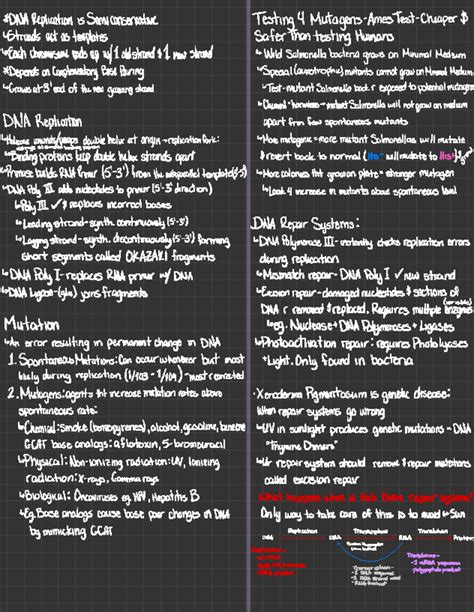 *DNA Replication is Semi conservative
↳Strands act as templates
↳Each chromosome ends up w/ 1 old strand & 1 new strand
*Depends on Complementary Base Pairing
↳Grows at 3' end of the new growing strand
DNA Replication
double helix at origin - replication fork:
↳Binding proteins keep double helix strands apart
↳Primase builds RNA Primer (5'-3') from the antiparallel template (3'-5')
↳DNA Poly III adds nucleotides to primer (5'-3' direction)
↳Poly III ✓ & replaces incorrect bases
↳Leading strand-synth. continuously (5'-3')
↳Lagging strand-synth. discontinuously (5'-3') forming
short segments called OKAZAKI fragments
↳DNA Poly I-replaces RNA primer w/ DNA
↳DNA Ligase-(glue) joins fragments
Mutation
↳An error resulting in permanent change in DNA
1. Spontaneous Mutations: Can occur whenever but most
likely during replication - most corrected
2. Mutagens: agents tht increase mutation rates above
spontaneous rate:
↳Chemical: Smoke (benzopyrenes), alcohol, gasoline, benzene
GCAT base analogs: aflatoxin, 5-bromouracil
↳Physical: Non-ionizing radiation: UV, Ionizing
radiation: X-rays, Gamma rays
↳Biological: Oncoviruses eg. HPV, Hepatitis B
↳Eg. Base analogs cause base pair changes in DNA
by mimicking GCAT
Testing 4 Mutagens-Ames Test-Cheaper &
Safer Than testing Humans
↳Wild Salmonella bacteria grows on Minimal Medium
↳Special (auxotrophic) mutants cannot grow on Minimal Medium
↳Test-mutant Salmonella bact. r exposed to potential mutagen
mutant Salmonella will not grow on medium
apart from few spontaneous mutants
↳More mutagenic = more mutant Salmonellas will mutate
& revert back to normal (His- will mutate to His+)
↳More colonies tht grow on plate = stronger mutagen
↳Look 4 increase in mutants above spontaneous level
DNA Repair Systems:
↳DNA Polymerase III - instantly checks replication errors
during replication
↳Mismatch repair - DNA Poly I ✓ new strand
↳Excision repair - damaged nucleotides & sections of
DNA r removed & replaced. Requires multiple enzymes
↳eg. Nuclease + DNA Polymerases + Ligases
↳Photoactivation repair: requires Photolyases
+ Light. Only found in bacteria
Xeroderma Pigmentosum is genetic disease:
When repair systems go wrong
↳UV in sunlight produces genetic mutations = DNA
"Thymine Dimers"
↳Ur repair system should remove & repair mutations
called excision repair
What happens when u lack these repair systems?
Only way to take care of this is to avoid the Sun
Replication Transcription Translation
DNA DNA RNA Protein